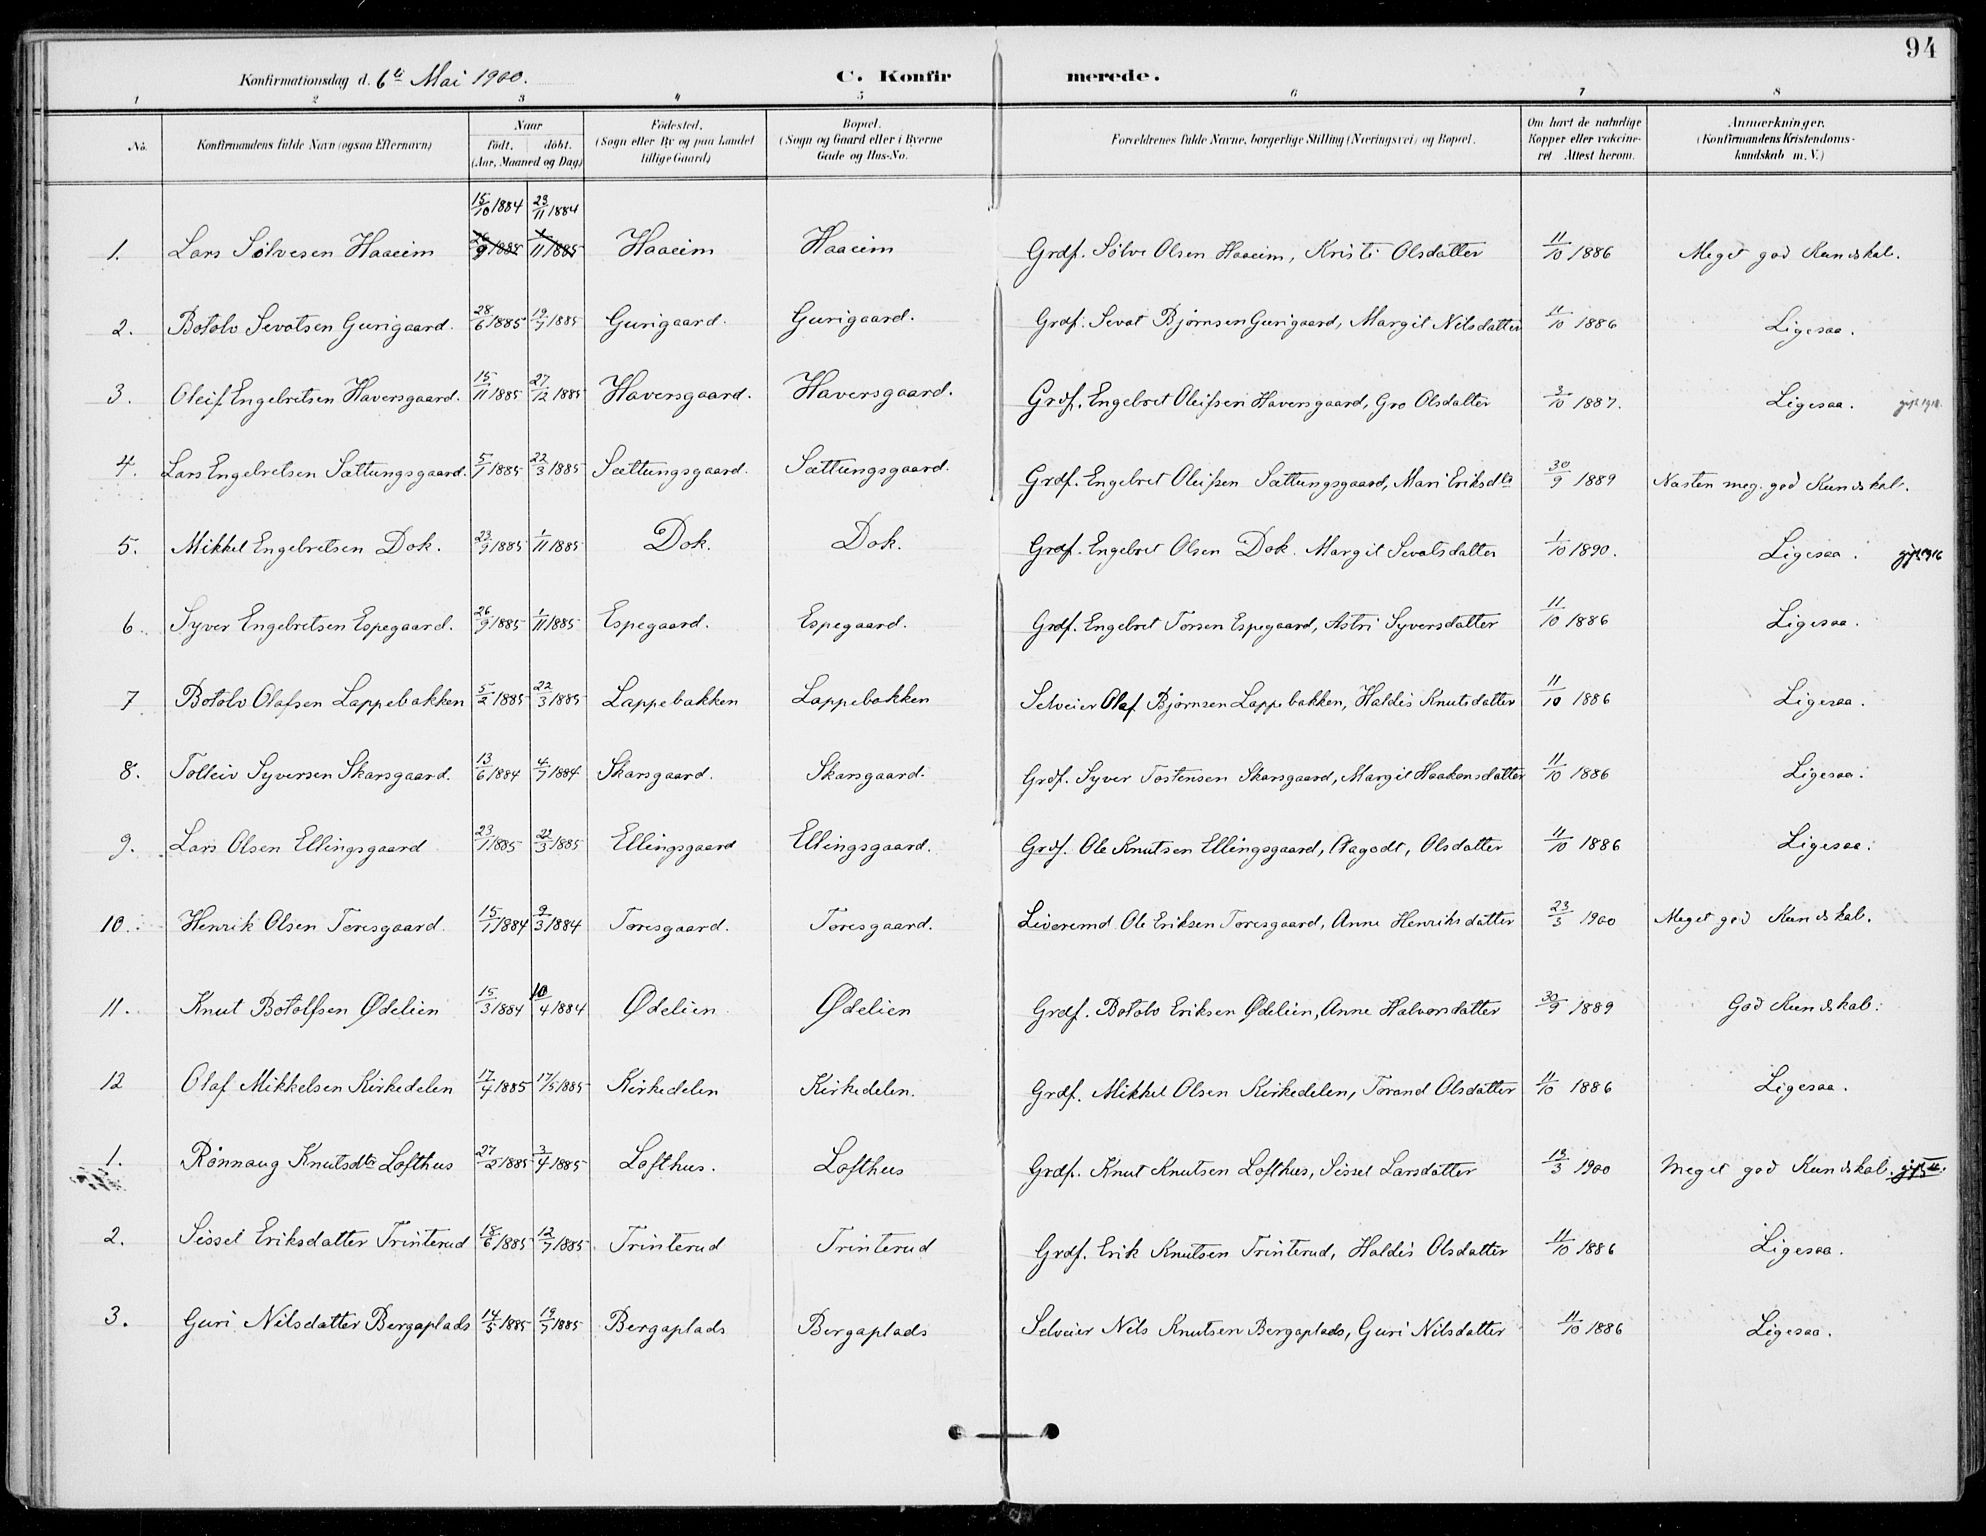 94
Konfirmationsdag d. 6te Mai 1900. C. Konfirmerede.
1 2 3 4 5 6 7 8
No. Konfirmandens fulde Navn (ogsaa Efternavn) Naar födt. döbt. (Aar, Maaned og Dag) Födested. (Sogn eller By og paa Landet tillige Gaard) Bopæl. (Sogn og Gaard eller i Byerne Gade og Hus-No. Forældrenes fulde Navne, borgerlige Stilling (Næringsvei) og Bopæl. Om havt de naturlige Kopper eller vakcineret Attest herom. Anmærkninger. (Konfirmandens Kristendomskundskab m. V.)
15/10 1884 23/11 1884
1. Lars Sølvesen Haaeim 26/9 1885 1/11 1885 Haaeim Haaeim Grdf. Sølve Olsen Haaeim, Kristi Olsdatter 11/10 1886 Meget god Kundskab.
2. Botolv Sevatsen Gurigaard. 28/6 1885 19/7 1885 Gurigaard. Gurigaard. Grdf. Sevat Bjørnsen Gurigaard, Margit Nilsdatter 11/10 1886 Ligesaa.
3. Oleif Engebretsen Haversgaard. 15/11 1885 27/12 1885 Haversgaard. Haversgaard. Grdf. Engebret Oleifsen Haversgaard, Gro Olsdatter 3/10 1887. Ligesaa.
4. Lars Engebretsen Sættungsgaard. 5/1 1885 22/3 1885 Sættungsgaard. Sættungsgaard. Grdf. Engebret Oleifsen Sættungsgaard, Mari Eriksdtr 30/9 1889 Næsten meg. god Kundskab.
5. Mikkel Engebretsen Dok. 23/9 1885 1/11 1885 Dok. Dok. Grdf. Engebret Olsen Dok. Margit Sevatsdatter 1/10 1890. Ligesaa. gift 1916
6. Syver Engebretsen Espegaard. 26/9 1885 1/11 1885 Espegaard. Espegaard. Grdf. Engebret Torsen Espegaard, Astri Syversdatter 11/10 1886 Ligesaa.
7 Botolv Olafsen Lappebakken 5/2 1885 22/3 1885 Lappebakken Lappebakken Selveier Olaf Bjørnsen Lappebakken, Haldis Knutsdatter 11/10 1886 Ligesaa.
8. Tolleiv Syversen Skarsgaard. 13/6 1884 4/7 1884 Skarsgaard. Skarsgaard. Grdf. Syver Tostensen Skarsgaard, Margit Haakonsdatter 11/10 1886 Ligesaa.
9. Lars Olsen Ellingsgaard 23/1 1885 22/3 1885 Ellingsgaard Ellingsgaard. Grdf. Ole Knutsen Ellingsgaard, Aagodt, Olsdatter 11/10 1886 Ligesaa.
10. Henrik Olsen Toresgaard. 15/1 1884 9/3 1884 Toresgaard. Toresgaard. Leveremd Ole Eriksen Toresgaard, Anne Henriksdatter 23/3 1900 Meget god Kundskab.
11. Knut Botolfsen Ødelien 15/3 1884 10/4 1884 Ødelien Ødelien Grdf. Botolv Eriksen Ødelien, Anne Halvorsdatter 30/9 1889 God Kundskab.
12 Olaf Mikkelsen Kirkedelen 17/4 1885 17/5 1885 Kirkedelen Kirkedelen. Grdf. Mikkel Olsen Kirkedelen, Torand Olsdatter 11/10 1886 Ligesaa.
1. Rønnaug Knutsdtr Lofthus 27/2 1885 3/4 1885 Lofthus. Lofthus Grdf. Knut Knutsen Lofthus, Sissel Larsdatter 13/3 1900 Meget god Kundskab.
2. Sissel Eriksdatter Trinterud 18/6 1885 12/7 1885 Trinterud Trinterud Grdf. Erik Knutsen Trinterud, Haldis Olsdatter 11/10 1886 Ligesaa.
3. Guri Nilsdatter Bergaplads 14/5 1885 19/7 1885 Bergaplads Bergaplads Selveier Nils Knutsen Bergaplads, Guri Nilsdatter 11/10 1886 Ligesaa.